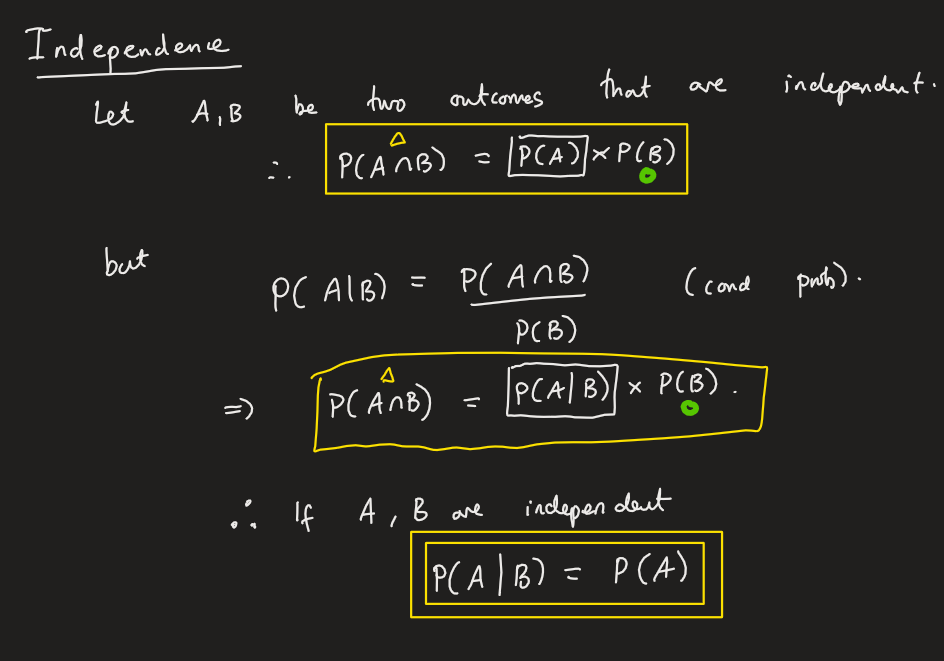 Independence
Let A, B be two outcomes that are independent.
∴ P(A∩B) = P(A) × P(B)
but P(A|B) = P(A∩B) / P(B) (cond prob).
⇒ P(A∩B) = P(A|B) × P(B).
∴ If A, B are independent
P(A|B) = P(A)